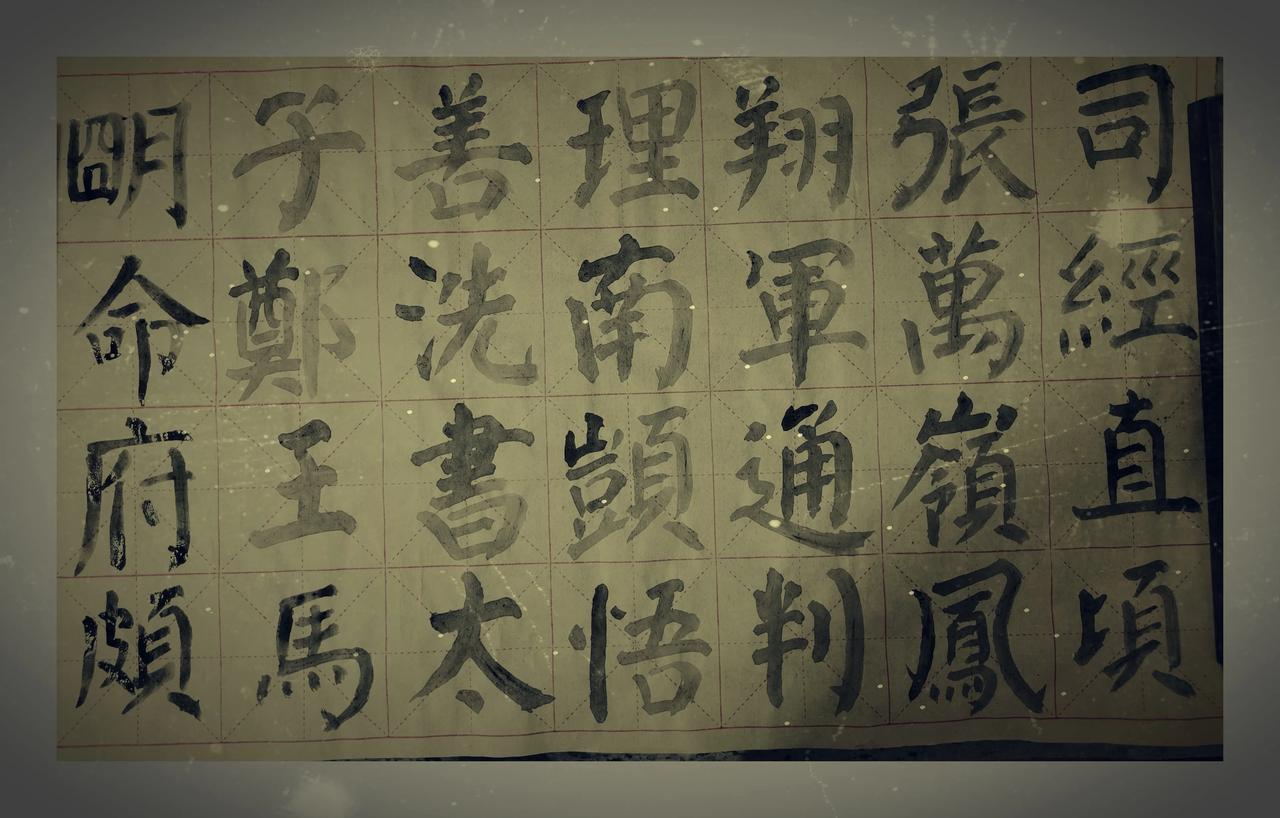 司經直頃
張萬嶺鳳
翔軍通判
理南顗悟
善洗書太
子鄭王馬
明命府頗